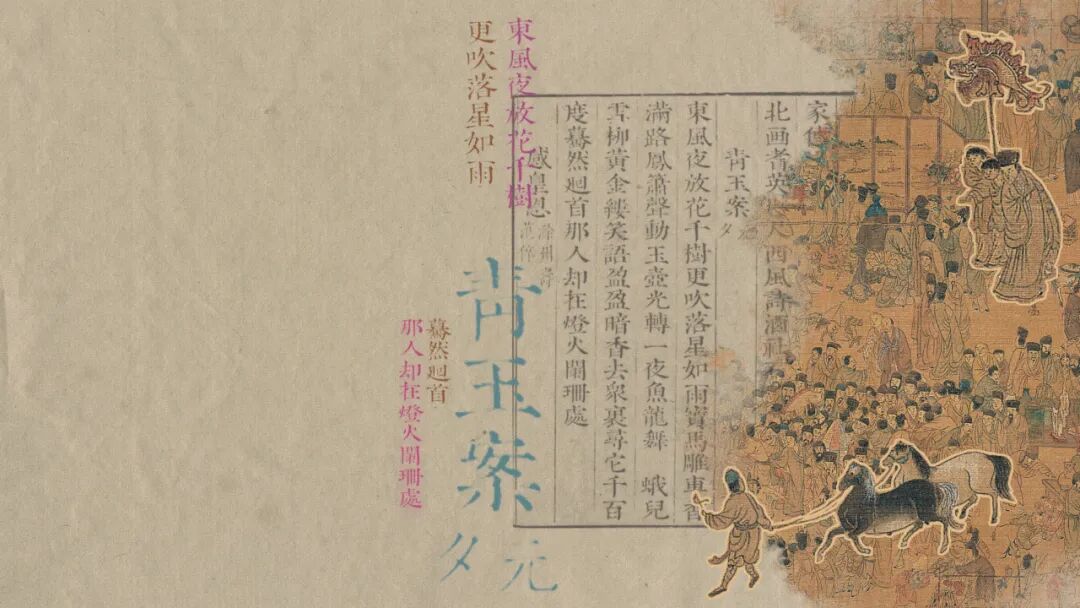 家
北画耆英人西風詩酒社
青玉案 元夕
東風夜放花千樹更吹落星如雨寶馬雕車香
滿路鳳簫聲動玉壺光轉一夜魚龍舞 蛾兒
雪柳黃金縷笑語盈盈暗香去衆裏尋它千百
度驀然廻首那人却在燈火闌珊處
感皇恩 滁州壽范倅
東風夜放花千樹
更吹落星如雨
青玉案
元夕
驀然廻首
那人却在燈火闌珊處